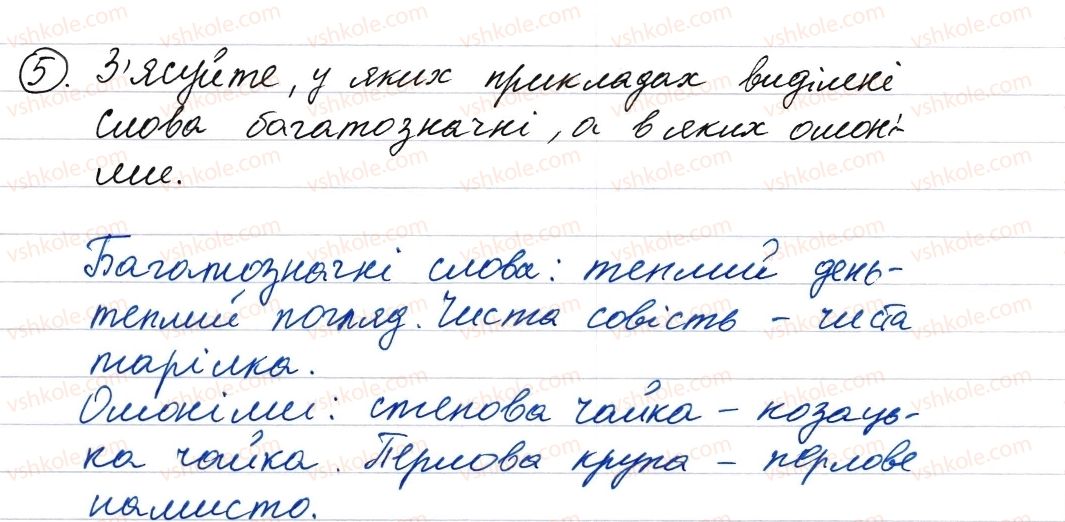 5. З'ясуйте, у яких прикладах виділені
слова багатозначні, а в яких омоні-
ми.
Багатозначні слова: теплий день-
теплий погляд. Чиста совість - чиста
тарілка.
Омоніми: степова чайка - козаць-
ка чайка. Перлова крупа - перлове
намисто.